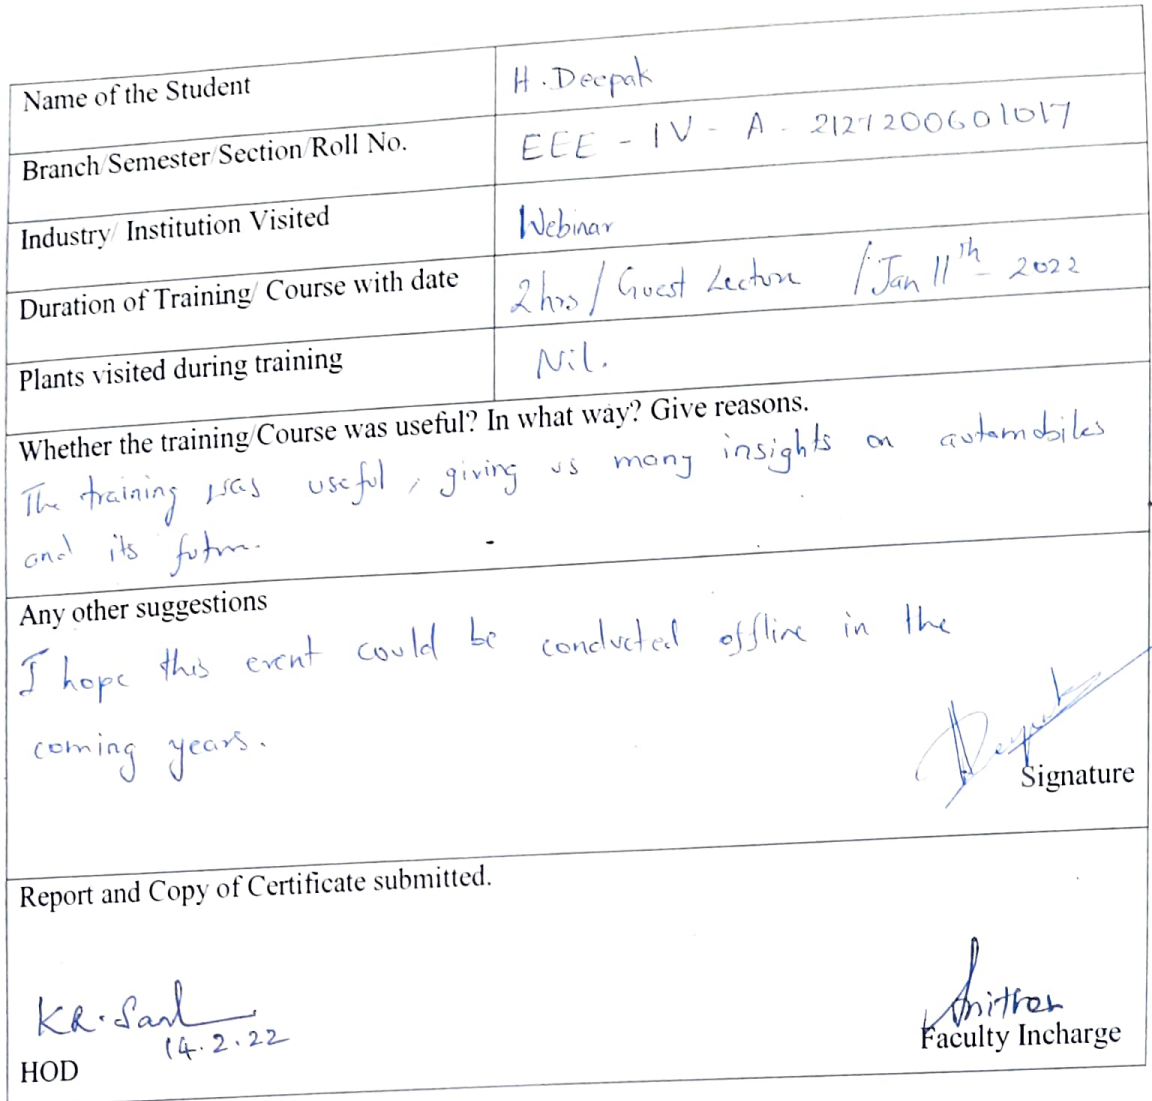 Name of the Student H. Deepak
Branch/Semester/Section/Roll No. EEE - IV - A - 2127200601017
Industry/ Institution Visited Webinar
Duration of Training/ Course with date 2hrs / Guest Lecture / Jan 11th - 2022
Plants visited during training Nil.
Whether the training/Course was useful? In what way? Give reasons.
The training was useful, giving us many insights on automobiles
and its future.
Any other suggestions
I hope this event could be conducted offline in the
coming years.
Deepak
Signature
Report and Copy of Certificate submitted.
14.2.22
HOD
Faculty Incharge